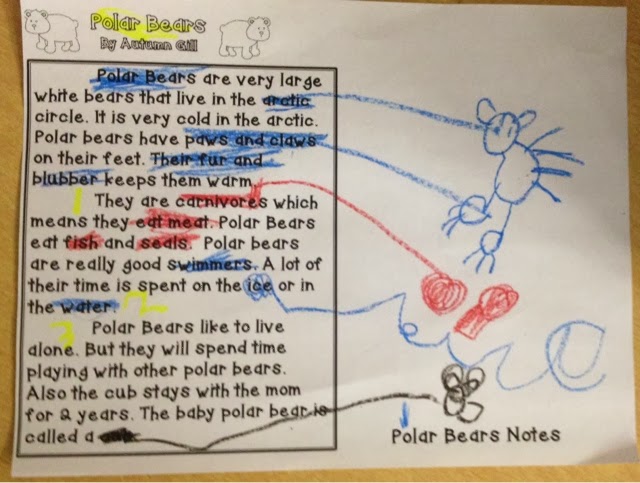 Polar Bears
By Autumn Gill
Polar Bears are very large
white bears that live in the arctic
circle. It is very cold in the arctic.
Polar bears have paws and claws
on their feet. Their fur and
blubber keeps them warm.
1 They are carnivores which
means they eat meat. Polar Bears
eat fish and seals. Polar bears
are really good swimmers. A lot of
their time is spent on the ice or in
the water. 2
3 Polar Bears like to live
alone. But they will spend time
playing with other polar bears.
Also the cub stays with the mom
for 2 years. The baby polar bear is
called a
Polar Bears Notes